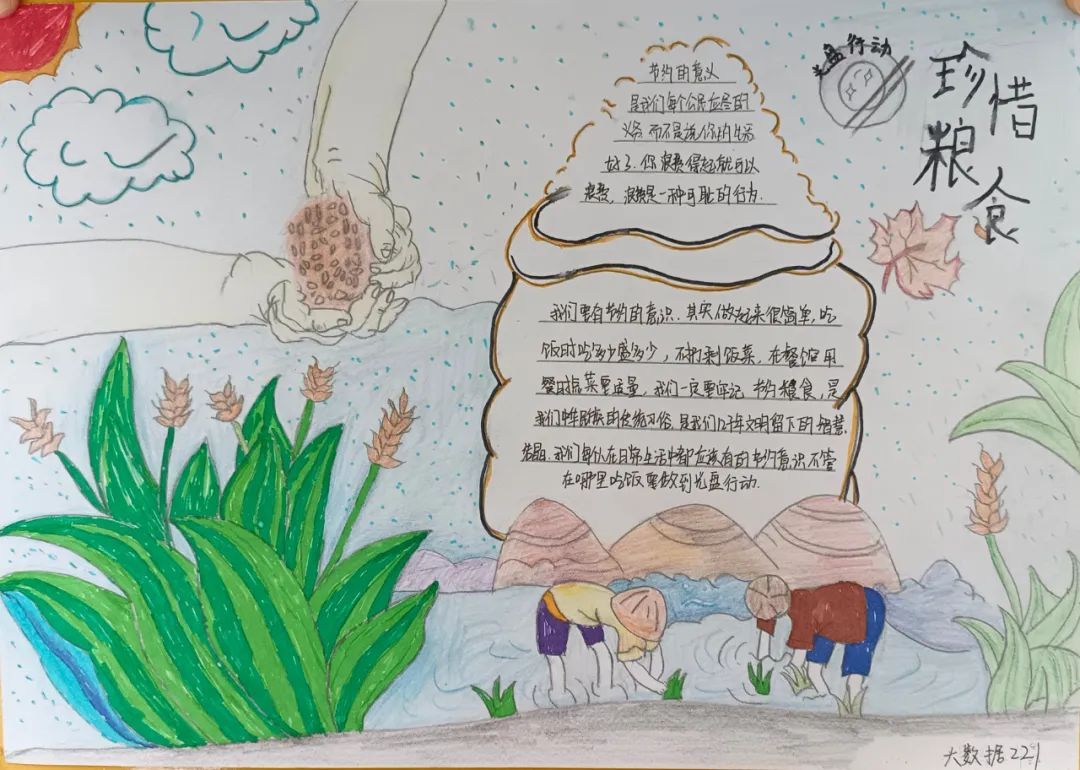 光盘行动
珍惜
粮食
节约的意义
是我们每个公民应尽的
义务 而不是说你的生活
好了,你浪费得起就可以
浪费,浪费是一种可耻的行为.
我们要有节约的意识.其实做起来很简单,吃
饭时吃多少盛多少,不扔剩饭菜,在餐馆用
餐时点菜要适量,我们一定要牢记 节约粮食,是
我们中华民族的传统习俗,是我们几千年文明留下的智慧
结晶.我们每个人在日常生活中都应该有的节约意识 不管
在哪里吃饭 要做到光盘行动.
大数据221